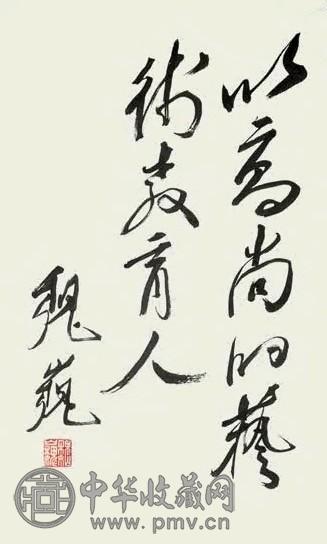 以高尚的藝
術教育人
魏巍
中华收藏网
www.pmv.cn